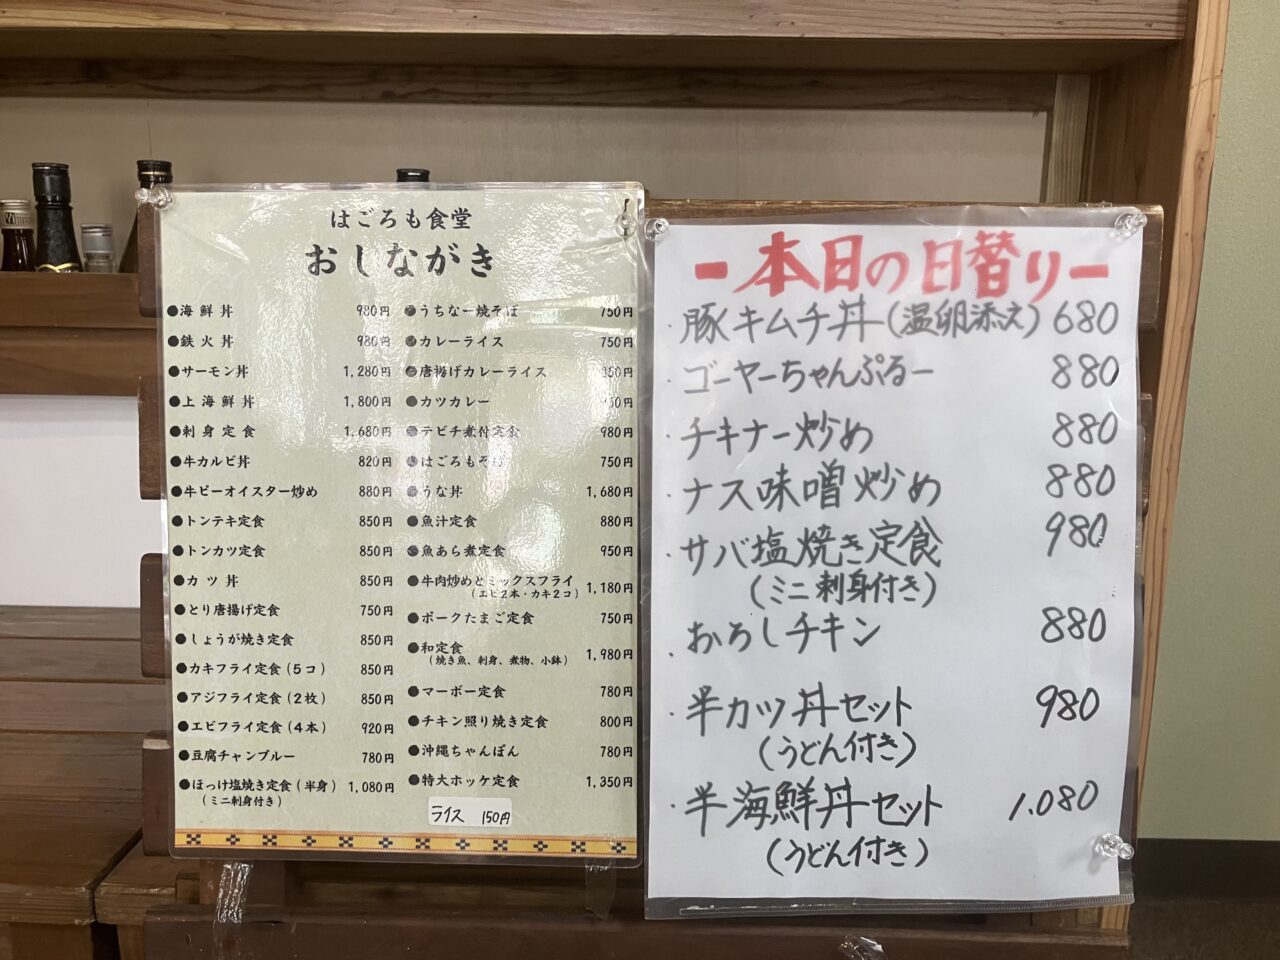 はごろも食堂
おしながき
●海鮮丼 980円
●鉄火丼 980円
●サーモン丼 1,280円
●上海鮮丼 1,800円
●刺身定食 1,680円
●牛カルビ丼 820円
●牛ビーオイスター炒め 880円
●トンテキ定食 850円
●トンカツ定食 850円
●カツ丼 850円
●とり唐揚げ定食 750円
●しょうが焼き定食 850円
●カキフライ定食(5コ) 850円
●アジフライ定食(2枚) 850円
●エビフライ定食(4本) 920円
●豆腐チャンプルー 780円
●ほっけ塩焼き定食(半身) 1,080円
(ミニ刺身付き)
●うちなー焼そば 750円
●カレーライス 750円
●唐揚げカレーライス
●カツカレー
●テビチ煮付定食 980円
●はごろもそば 750円
●うな丼 1,680円
●魚汁定食 880円
●魚あら煮定食 950円
●牛肉炒めとミックスフライ 1,180円
(エビ2本・カキ2コ)
●ポークたまご定食 750円
●和定食 1,980円
(焼き魚、刺身、煮物、小鉢)
●マーボー定食 780円
●チキン照り焼き定食 800円
●沖縄ちゃんぽん 780円
●特大ホッケ定食 1,350円
ライス 150円
ー本日の日替りー
・豚キムチ丼(温卵添え) 680
・ゴーヤーちゃんぷるー 880
・チキナー炒め 880
・ナス味噌炒め 880
・サバ塩焼き定食 980
(ミニ刺身付き)
・おろしチキン 880
・半カツ丼セット 980
(うどん付き)
・半海鮮丼セット 1.080
(うどん付き)